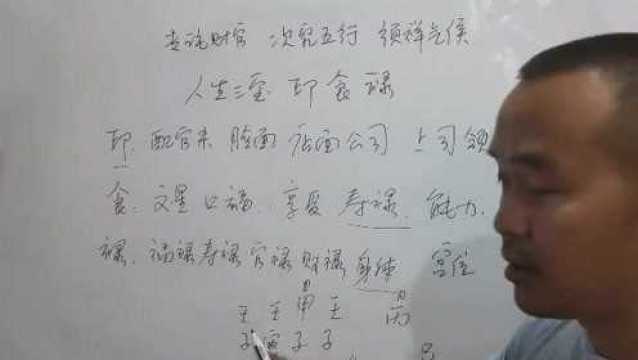 次究五行 须祥气侯
人生三宝 印 食 禄
印. 配官未 脸面 店面 公司 上司 领
食. 文星 口福. 享受 寿禄. 能力.
禄. 福禄寿禄官禄财禄 身体 宫位
日 日
壬 壬 甲 壬 丙
子 寅 子 子